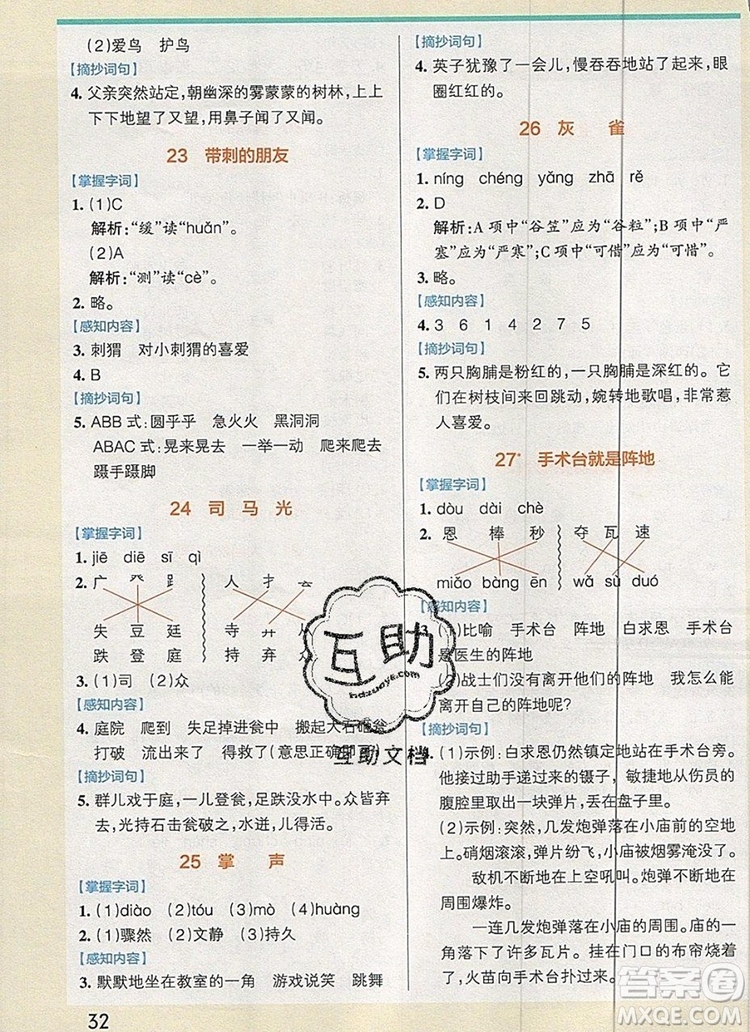 (2)爱鸟 护鸟
【摘抄词句】
4. 父亲突然站定,朝幽深的雾蒙蒙的树林,上上
下下地望了又望,用鼻子闻了又闻。
23 带刺的朋友
【掌握字词】
1. (1)C
解析:“缓”读“huǎn”。
(2)A
解析:“测”读“cè”。
2. 略。
【感知内容】
3. 刺猬 对小刺猬的喜爱
4. B
【摘抄词句】
5. ABB 式:圆乎乎 急火火 黑洞洞
ABAC 式:晃来晃去 一举一动 爬来爬去
蹑手蹑脚
24 司马光
【掌握字词】
1. jiē diē sī qì
2. 广 癶 𧾷 人 扌 𠫓
失 豆 廷 寺 弃
跌 登 庭 持 弃 众
3. (1)司 (2)众
【感知内容】
4. 庭院 爬到 失足掉进瓮中 搬起大石砸瓮
打破 流出来了 得救了(意思正确即可)
【摘抄词句】
5. 群儿戏于庭,一儿登瓮,足跌没水中。众皆弃
去,光持石击瓮破之,水迸,儿得活。
25 掌声
【掌握字词】
1. (1)diào (2)tóu (3)mò (4)huàng
2. (1)骤然 (2)文静 (3)持久
【感知内容】
3. 默默地坐在教室的一角 游戏说笑 跳舞
32
【摘抄词句】
4. 英子犹豫了一会儿,慢吞吞地站了起来,眼
圈红红的。
26 灰雀
【掌握字词】
1. níng chéng yǎng zhā rě
2. D
解析:A 项中“谷笠”应为“谷粒”;B 项中“严
塞”应为“严寒”;C 项中“可借”应为“可惜”。
3. 略。
【感知内容】
4. 3 6 1 4 2 7 5
【摘抄词句】
5. 两只胸脯是粉红的,一只胸脯是深红的。它
们在树枝间来回跳动,婉转地歌唱,非常惹
人喜爱。
27* 手术台就是阵地
【掌握字词】
1. dòu dài chè
2. 恩 棒 秒 夺 瓦 速
miǎo bàng ēn wǎ sù duó
【感知内容】
(1)比喻 手术台 阵地 白求恩 手术台
是医生的阵地
(2)战士们没有离开他们的阵地 我怎么能
离开自己的阵地呢?
【摘抄词句】
4. (1)示例:白求恩仍然镇定地站在手术台旁。
他接过助手递过来的镊子,敏捷地从伤员的
腹腔里取出一块弹片,扔在盘子里。
(2)示例:突然,几发炮弹落在小庙前的空地
上。硝烟滚滚,弹片纷飞,小庙被震得直晃动。
敌机不断地在上空吼叫。炮弹不断地在周
围爆炸。
一连几发炮弹落在小庙的周围。庙的一
角落下了许多瓦片。挂在门口的布帘烧着了
火,火苗向手术台扑过来。
互助
hdzuoye.com
互助文档
答案圈
MXQE.COM